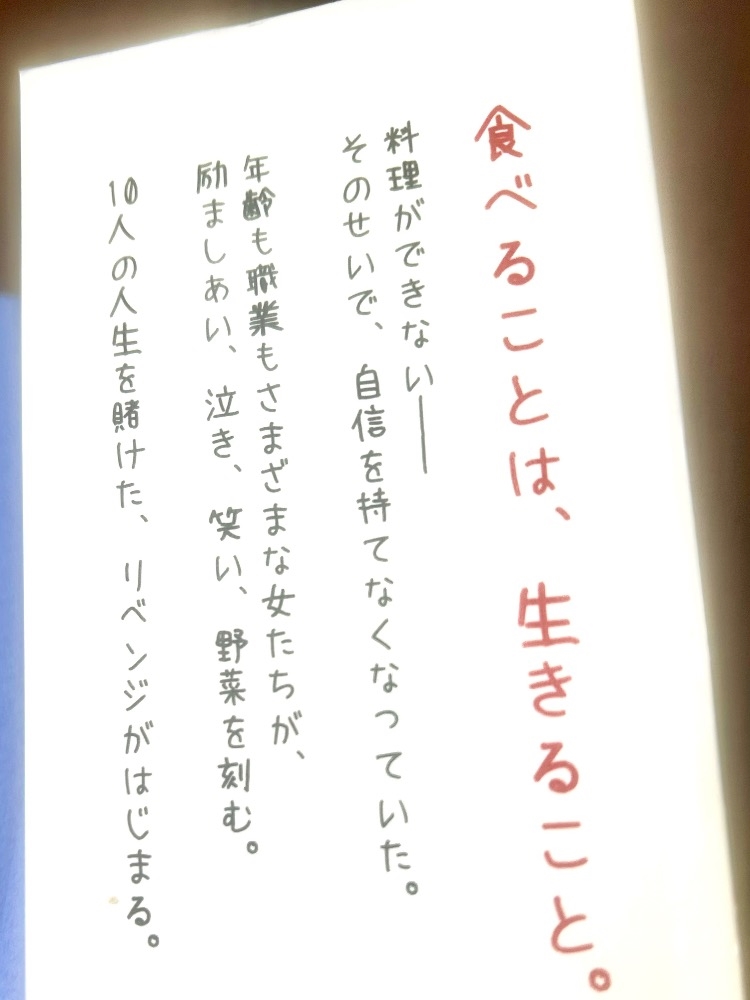 食べることは、生きること。
料理ができない──
そのせいで、自信を持てなくなっていた。
年齢も職業もさまざまな女たちが、
励ましあい、泣き、笑い、野菜を刻む。
10人の人生を賭けた、リベンジがはじまる。